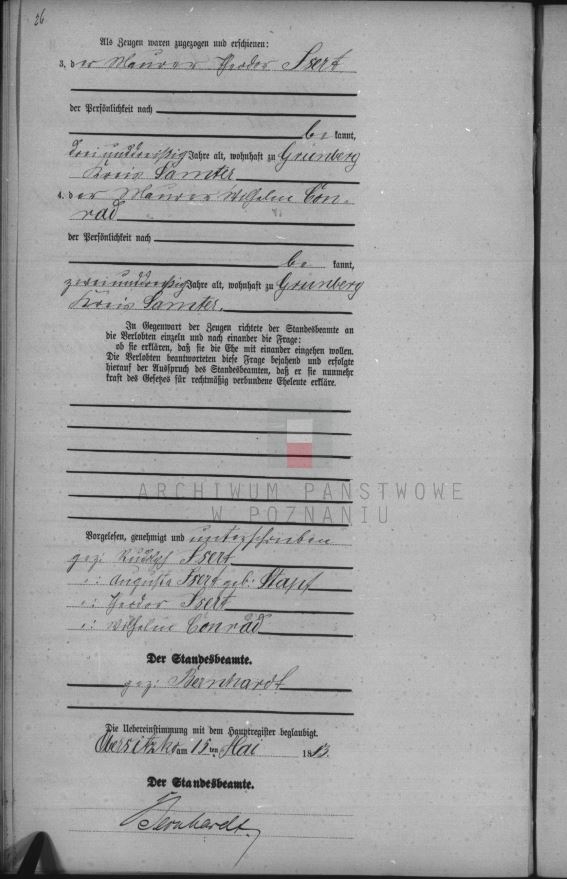 26
Als Zeugen waren zugezogen und erschienen:
3. der Maurer Theodor Isert
der Persönlichkeit nach
be kannt,
dreiunddreißig Jahre alt, wohnhaft zu Grünberg
Kreis Samter
4. der Maurer Wilhelm Con-
rad
der Persönlichkeit nach
be kannt,
zweiunddreißig Jahre alt, wohnhaft zu Grünberg
Kreis Samter.
In Gegenwart der Zeugen richtete der Standesbeamte an
die Verlobten einzeln und nach einander die Frage:
ob sie erklären, daß sie die Ehe mit einander eingehen wollen.
Die Verlobten beantworteten diese Frage bejahend und erfolgte
hierauf der Ausspruch des Standesbeamten, daß er sie nunmehr
kraft des Gesetzes für rechtmäßig verbundene Eheleute erkläre.
ARCHIWUM PAŃSTWOWE
W POZNANIU
Vorgelesen, genehmigt und unterschrieben
gez: Rudolph Isert
": Augusta Isert geb: Stapf
": Theodor Isert
": Wilhelm Conrad
Der Standesbeamte.
gez: Bernhardt
Die Uebereinstimmung mit dem Hauptregister beglaubigt.
Obersitzko am 15 ten Mai 18
Der Standesbeamte.
Bernhardt.